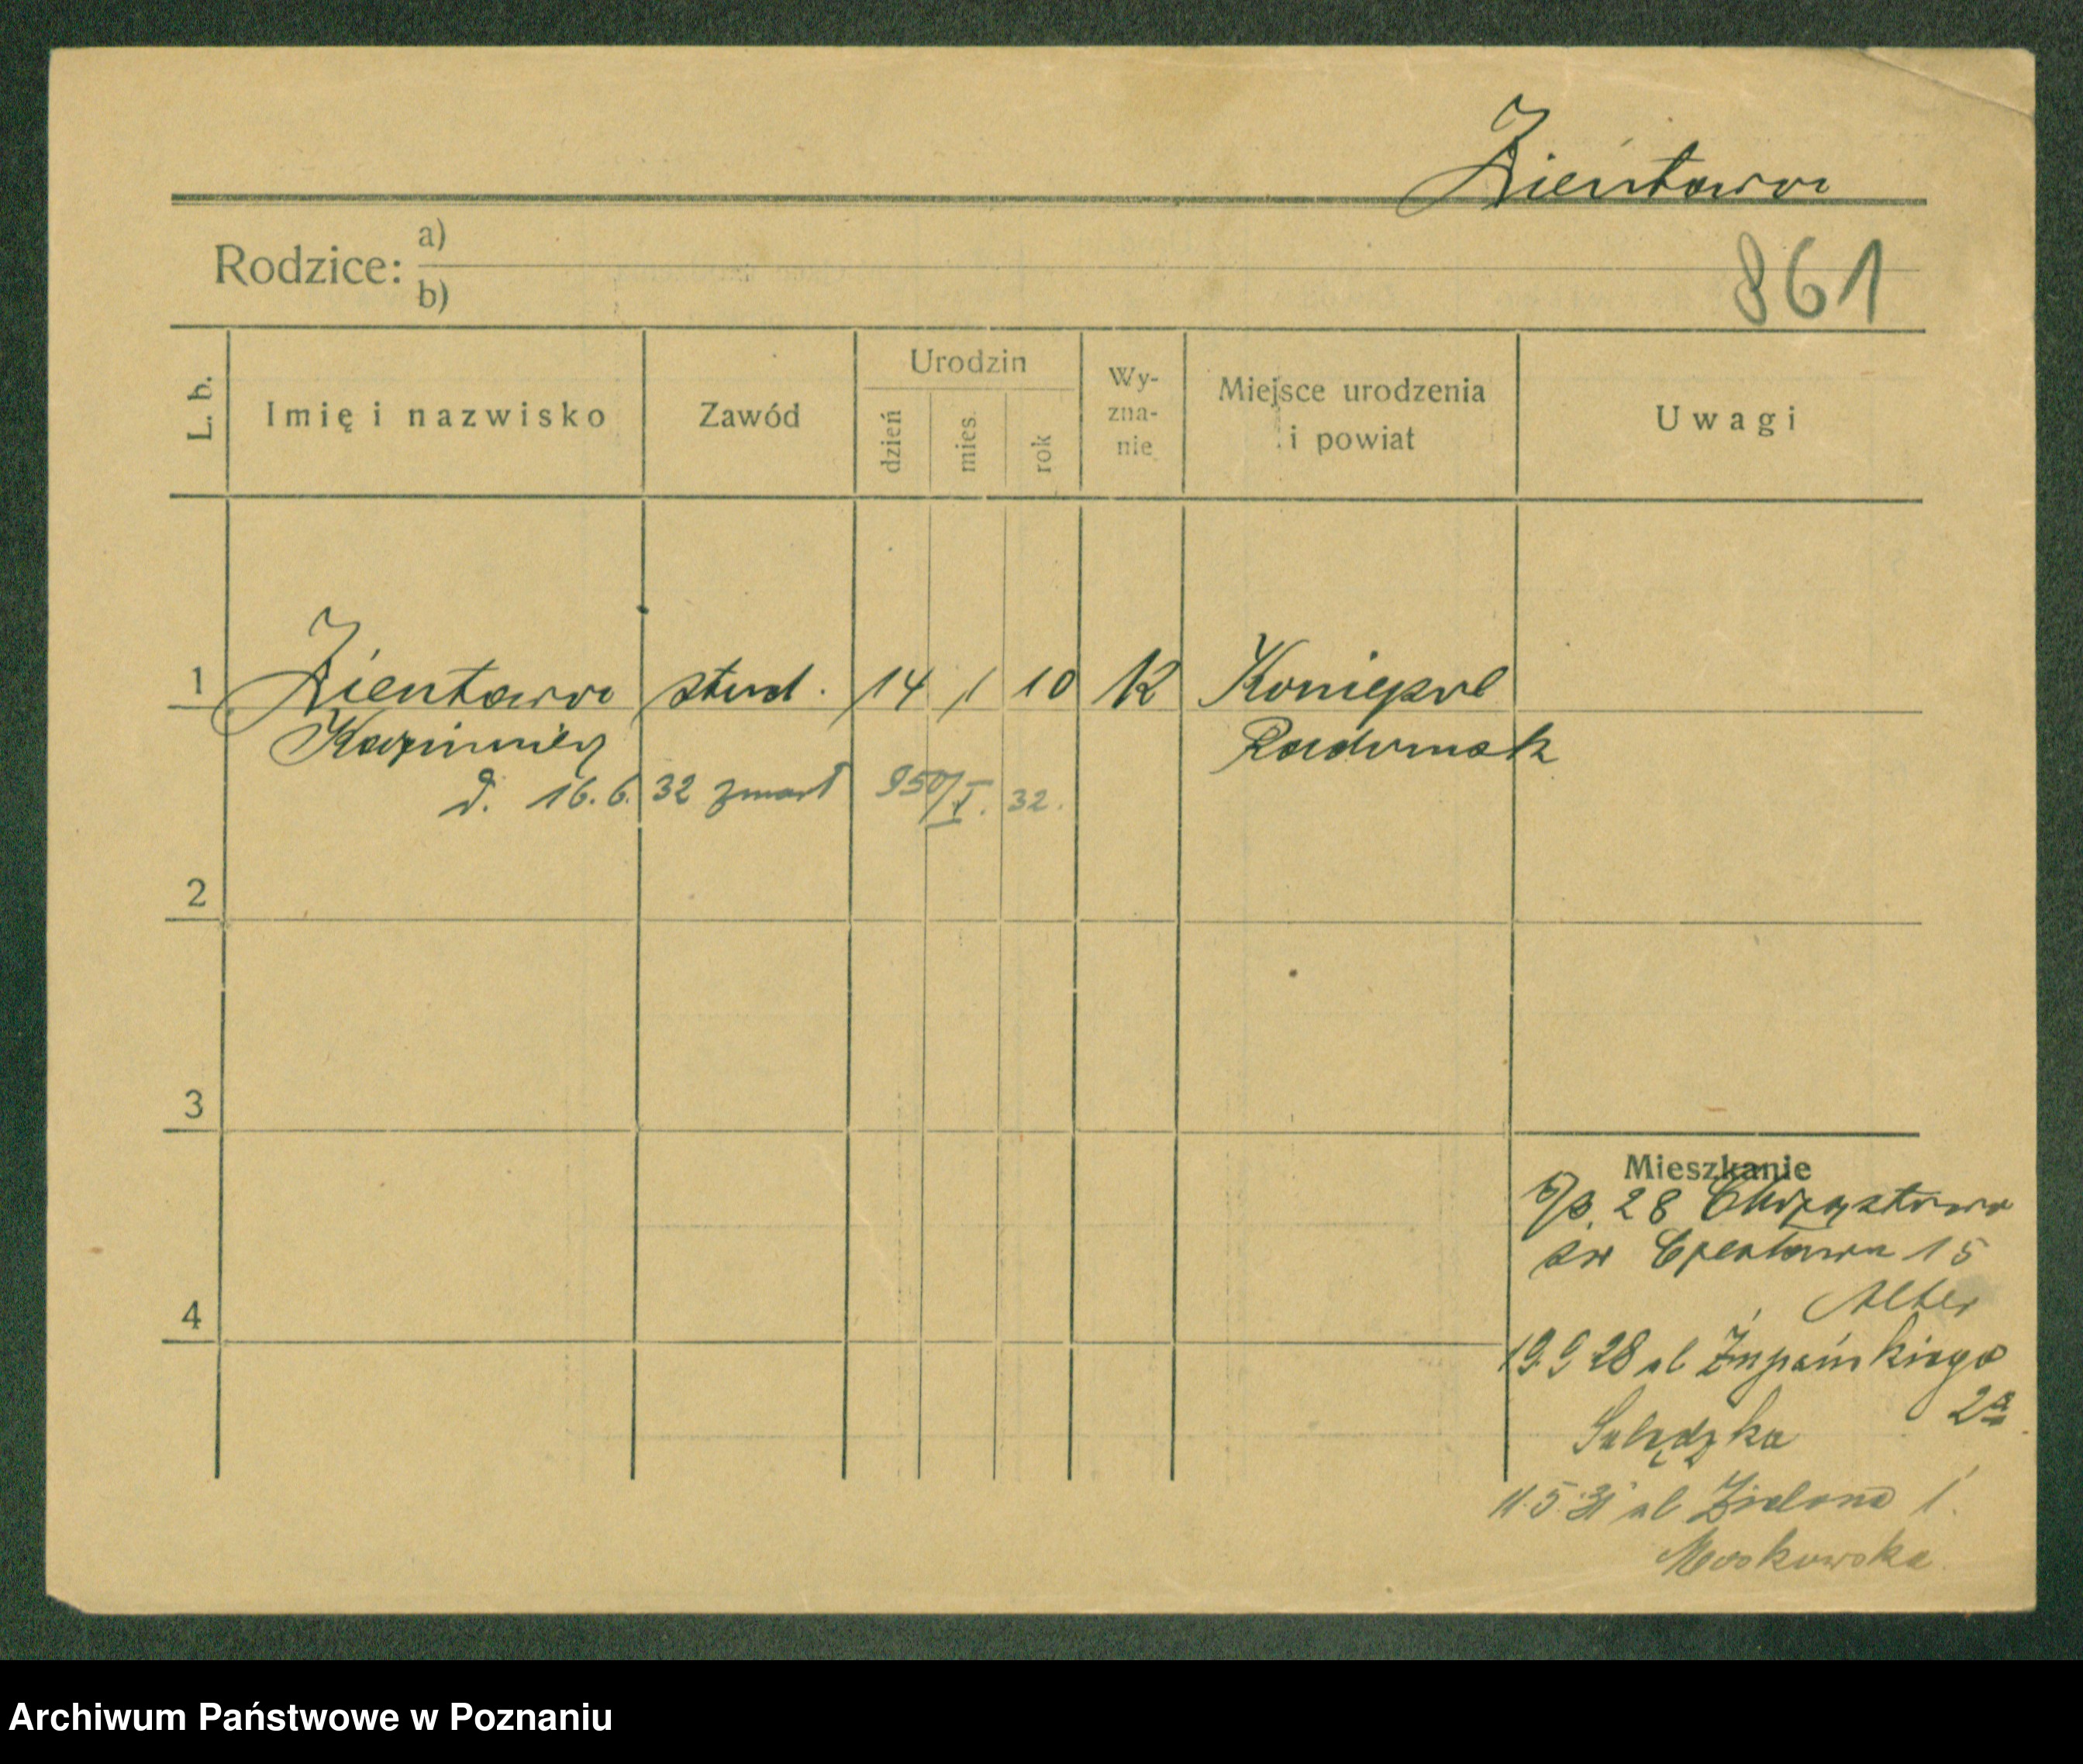 Zientara
Rodzice: a)
b)
861
L. b.
Imię i nazwisko
Zawód
Urodzin
dzień
mies.
rok
Wy-
zna-
nie
Miejsce urodzenia
i powiat
Uwagi
1 Zientara stud. 14 1 10 K Koniecpol
Kazimierz Radomsk
d. 16.6.32 zmarł 950/I. 32.
2
3
4
Mieszkanie
28
15
19.9 28 ul Żupańskiego
2a
11.5.31 ul Zielona 1.
Moskowska
Archiwum Państwowe w Poznaniu